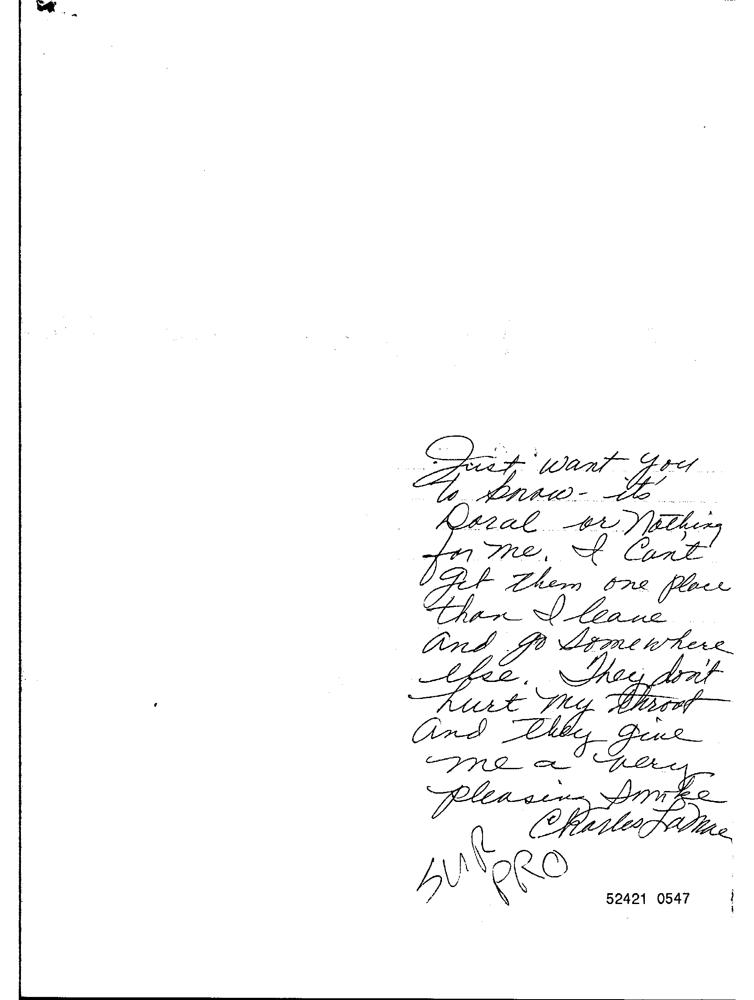 Just want you
to know - it's
Doral or Nothing
for me. I Can't
get them one place
than I leave
and go somewhere
else. They don't
hurt my throat
And they give
me a very
pleasing smoke
Charles LaMae
SUR
PRO
52421 0547